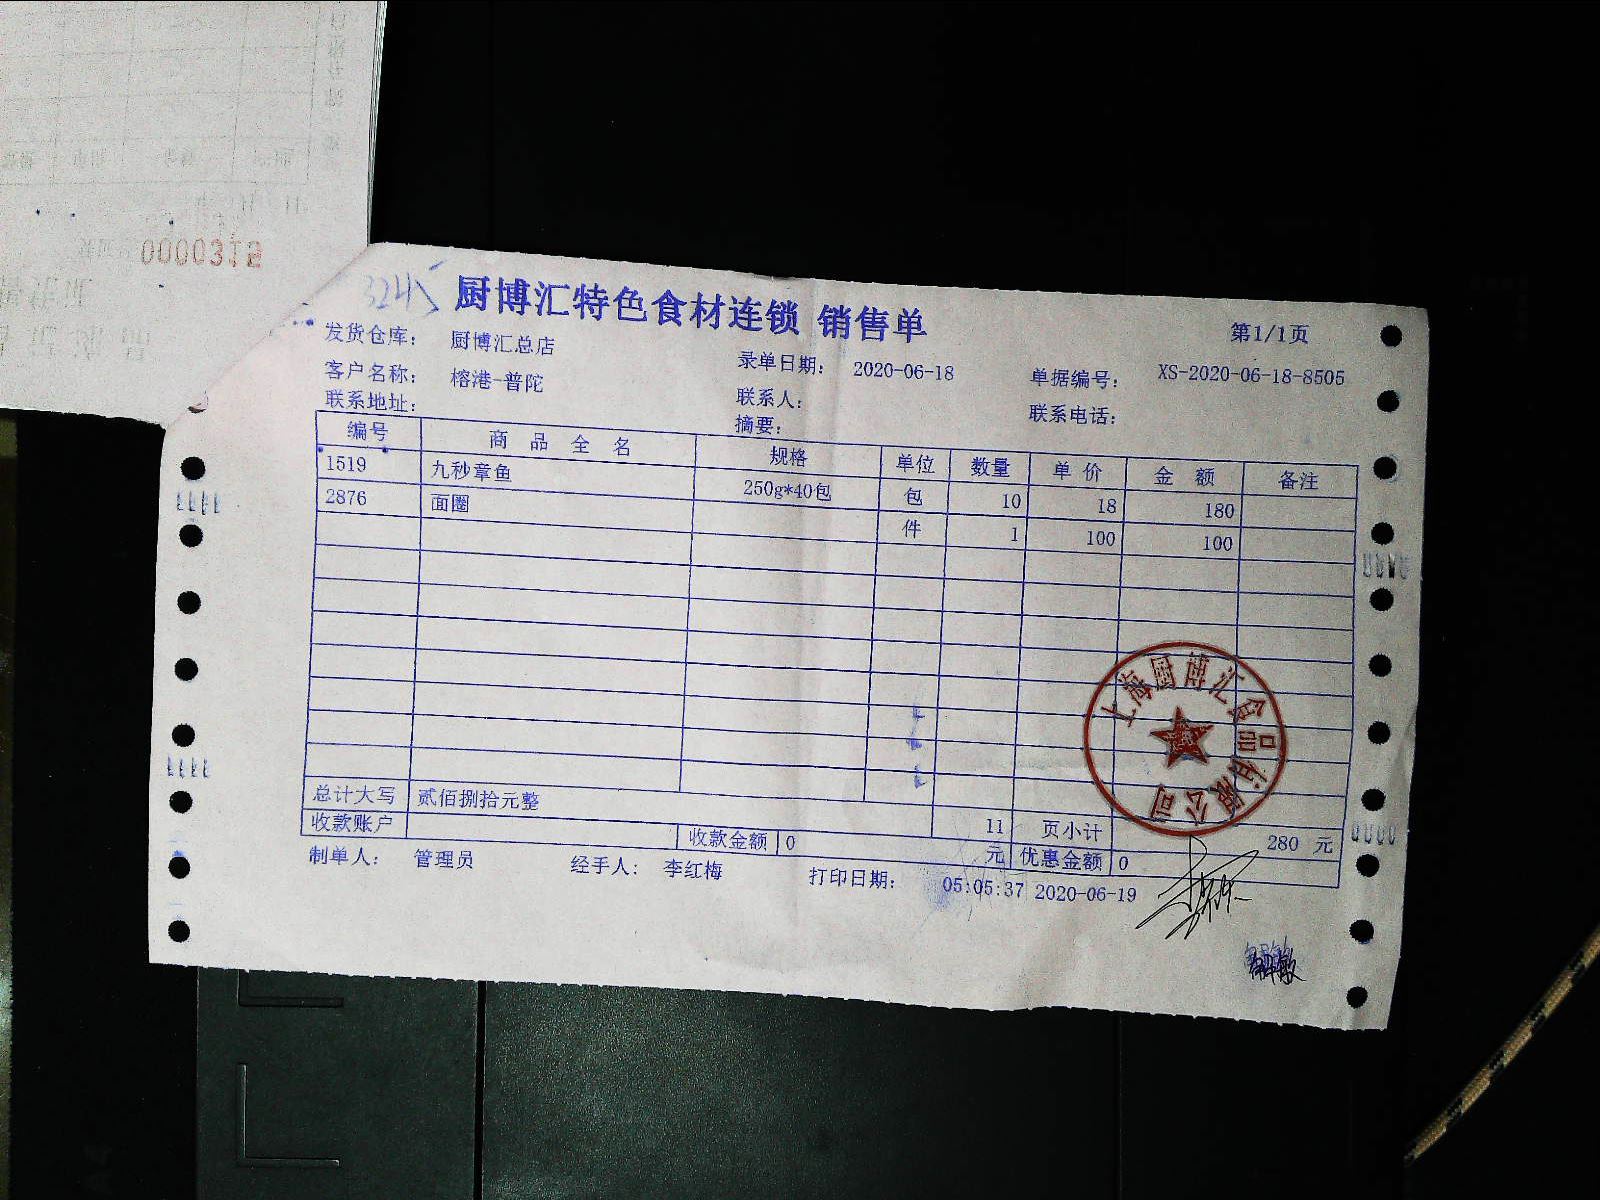 0000312
3245
厨博汇特色食材连锁 销售单
第1/1页
发货仓库： 厨博汇总店
录单日期： 2020-06-18
单据编号： XS-2020-06-18-8505
客户名称： 榕港-普陀
联系人：
联系电话：
联系地址：
摘要：
编号 商品全名 规格 单位 数量 单价 金额 备注
1519 九秒章鱼 250g*40包 包 10 18 180
2876 面圈 件 1 100 100
总计大写 贰佰捌拾元整 11 页小计 280 元
收款账户 收款金额 0 元 优惠金额 0
制单人： 管理员 经手人： 李红梅 打印日期： 05:05:37 2020-06-19
上海厨博汇食品有限公司